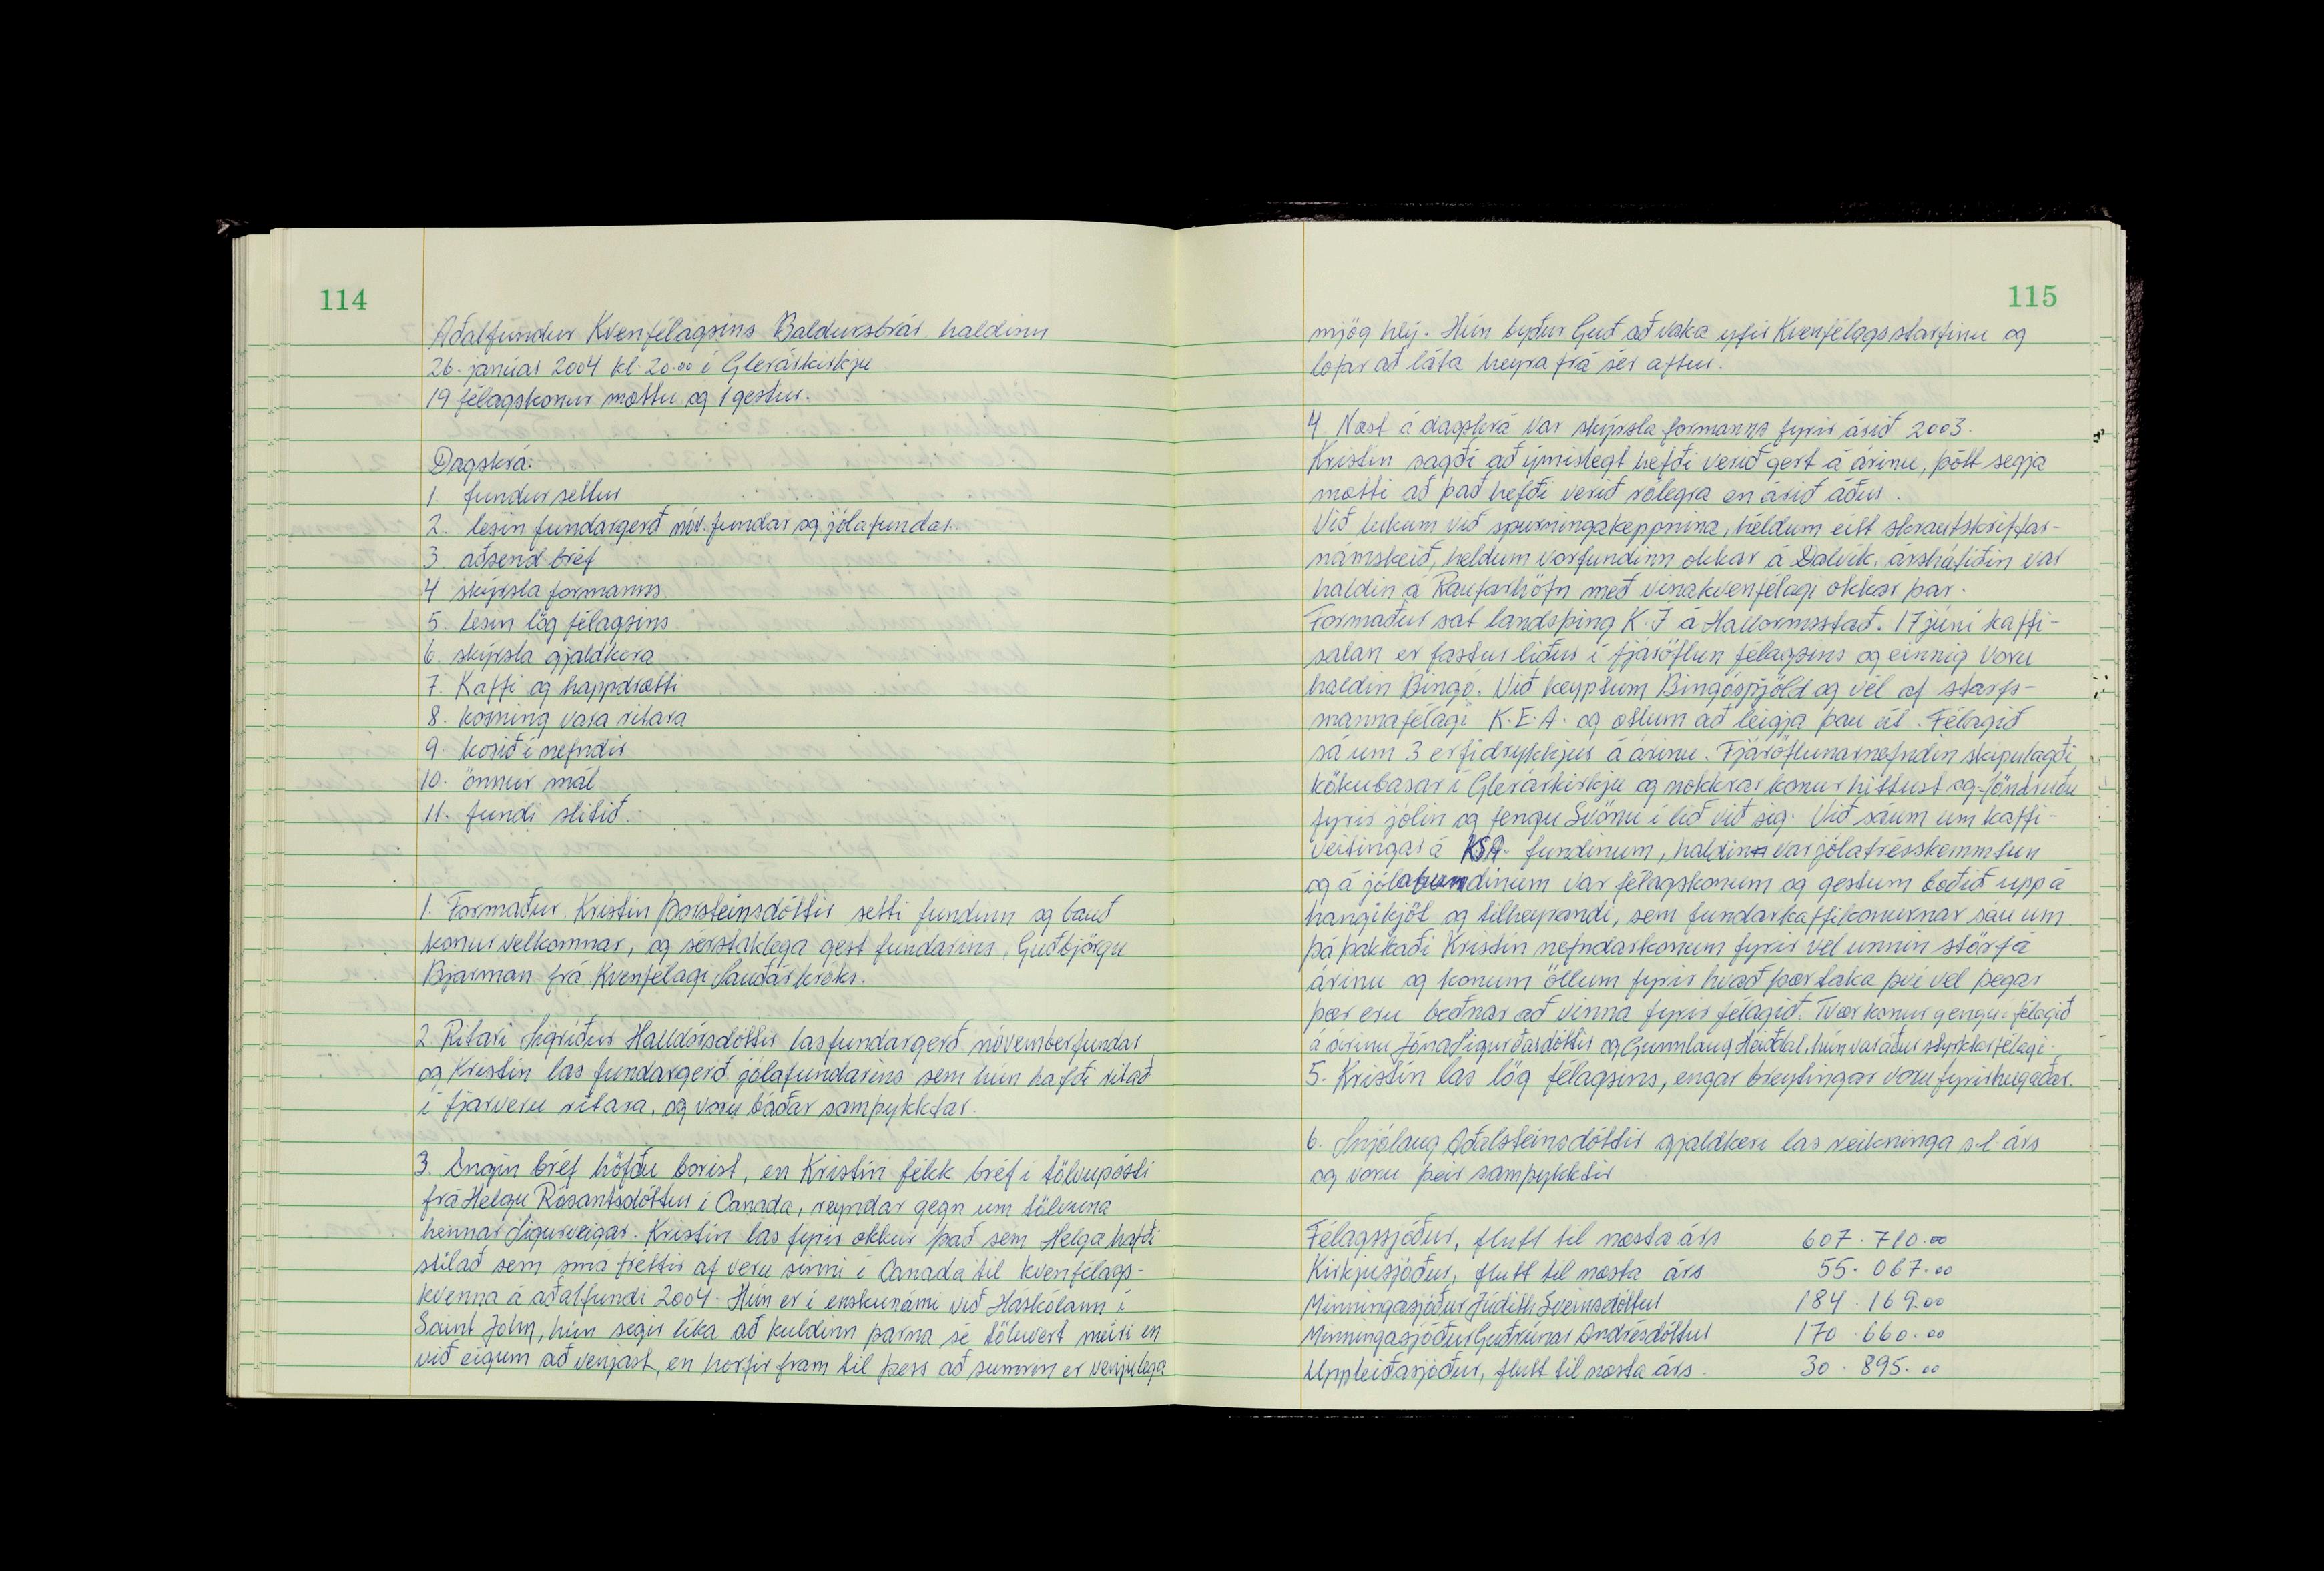 114
Aðalfundur Kvenfélagsins Baldursbrár haldinn
26. janúar 2004 kl. 20.00 í Glerárkirkju
19 félagskonur mættu og 1 gestur.
Dagskrá:
1. fundur settur
2. lesin fundargerð nóv. fundar og jólafundar.
3. aðsend bréf
4 skýrsla formanns
5. lesin lög félagsins
6. skýrsla gjaldkera
7. Kaffi og happdrætti
8. kosning vara ritara
9. kosið í nefndir
10. önnur mál
11. fundi slitið.
1. Formaður Kristín Þorsteinsdóttir setti fundinn og bauð
konur velkomnar, og sérstaklega gest fundarins, Guðbjörgu
Bjarman frá Kvenfélagi Sauðárkróks.
2. Ritari Sigríður Halldórsdóttir las fundargerð nóvemberfundar
og Kristín las fundargerð jólafundarins sem hún hafði ritað
í fjarveru ritara, og voru báðar samþykktar.
3. Engin bréf höfðu borist, en Kristín fékk bréf í tölvupósti
frá Helgu Rósantsdóttur í Canada, reyndar gegn um tölvuna
hennar Sigurveigar. Kristín las fyrir okkur það sem Helga hafði
stílað sem smá fréttir af veru sinni í Canada til kvenfélags-
kvenna á aðalfundi 2004. Hún er í enskunámi við Háskólann í
Saint John, hún segir líka að kuldinn þarna sé töluvert meiri en
við eigum að venjast, en horfir fram til þess að sumrin er venjulega
115
mjög hlý. Hún byður Guð að vaka yfir Kvenfélagsstarfinu og
lofar að láta heyra frá sér aftur.
4. Næst á dagskrá var skýrsla formanns fyrir árið 2003.
Kristín sagði að ýmislegt hefði verið gert á árinu, þótt segja
mætti að það hefði verið rólegra en árið áður.
Við lukum við spurningakeppnina, héldum eitt skrautskriftar-
námskeið, héldum vorfundinn okkar á Dalvík. árshátíðin var
haldin á Raufarhöfn með vinakvenfélagi okkar þar.
Formaður sat landsþing K.Í á Hallormsstað. 17 júní kaffi-
salan er fastur liður í fjáröflun félagsins og einnig voru
haldin Bingó. Við keyptum Bingóspjöld og vél af starfs-
mannafélagi K.E.A. og ætlum að leigja þau út. Félagið
sá um 3 erfidrykkjur á árinu. Fjáröflunarnefndin skipulagði
kökubasar í Glerárkirkju og nokkrar konur hittust og föndruðu
fyrir jólin og fengu Svönu í lið við sig. Við sáum um kaffi-
veitingar á KSA. fundinum, haldin var jólatrésskemmtun
og á jólafundinum var félagskonum og gestum boðið upp á
hangikjöt og tilheyrandi, sem fundarkaffikonurnar sáu um.
þá þakkaði Kristín nefndarkonum fyrir vel unnin störf á
árinu og konum öllum fyrir hvað þær taka því vel þegar
þær eru beðnar að vinna fyrir félagið. Tvær konur gengu í félagið
á árinu Jóna Sigurðardóttir og Gunnlaug Heiðdal, hún var áður styrktarfélagi.
5. Kristín las lög félagsins, engar breytingar voru fyrirhugaðar.
6. Snjólaug Aðalsteinsdóttir gjaldkeri las reikninga s.l árs
og voru þeir samþykktir
Félagssjóður, flutt til næsta árs 607.710.00
Kirkjusjóður, flutt til næsta árs 55.067.00
Minningasjóður Júdith Sveinsdóttur 184.169.00
Minningasjóður Guðrúnar Andrésdóttur 170.660.00
Uppleiðasjóður, flutt til næsta árs. 30.895.00